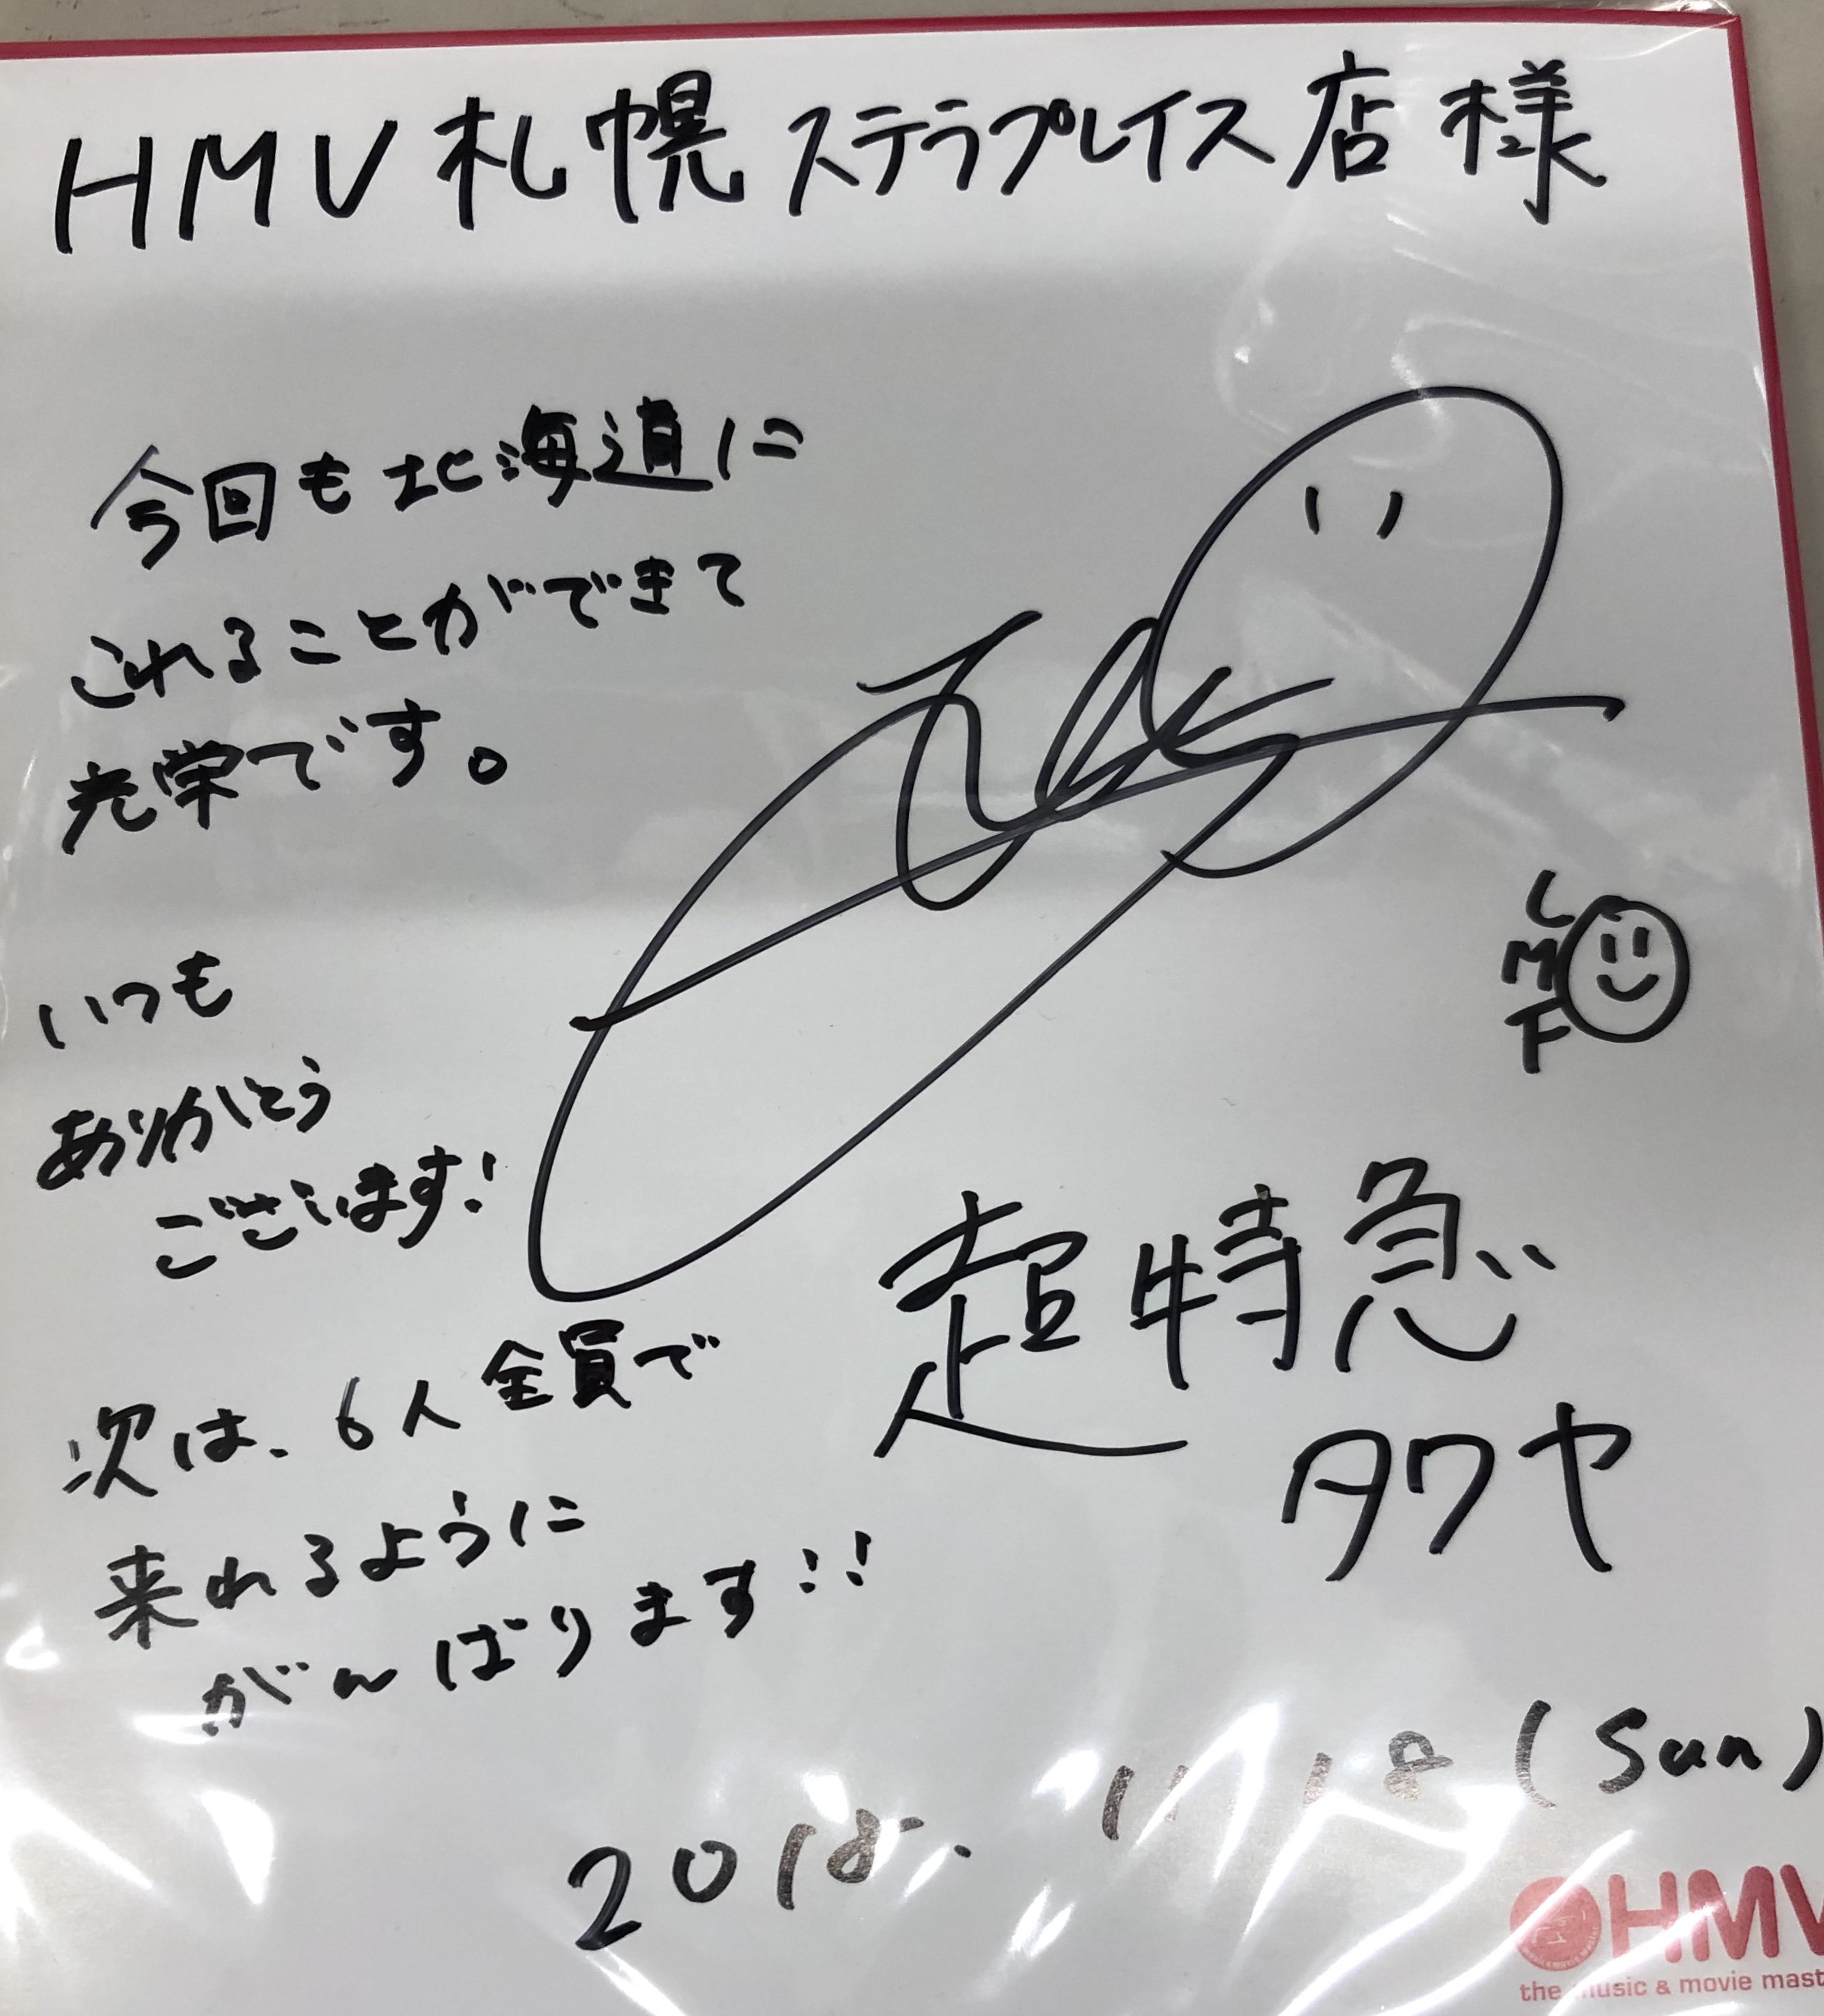 HMV札幌ステラプレイス店様
今回も北海道に
これることができて
光栄です。
いつも
ありがとう
ございます!
次は、6人全員で
来れるように
がんばります!!
L
M
F
超特急
タクヤ
2018. 11 18 (Sun)
HMV
the music & movie mast